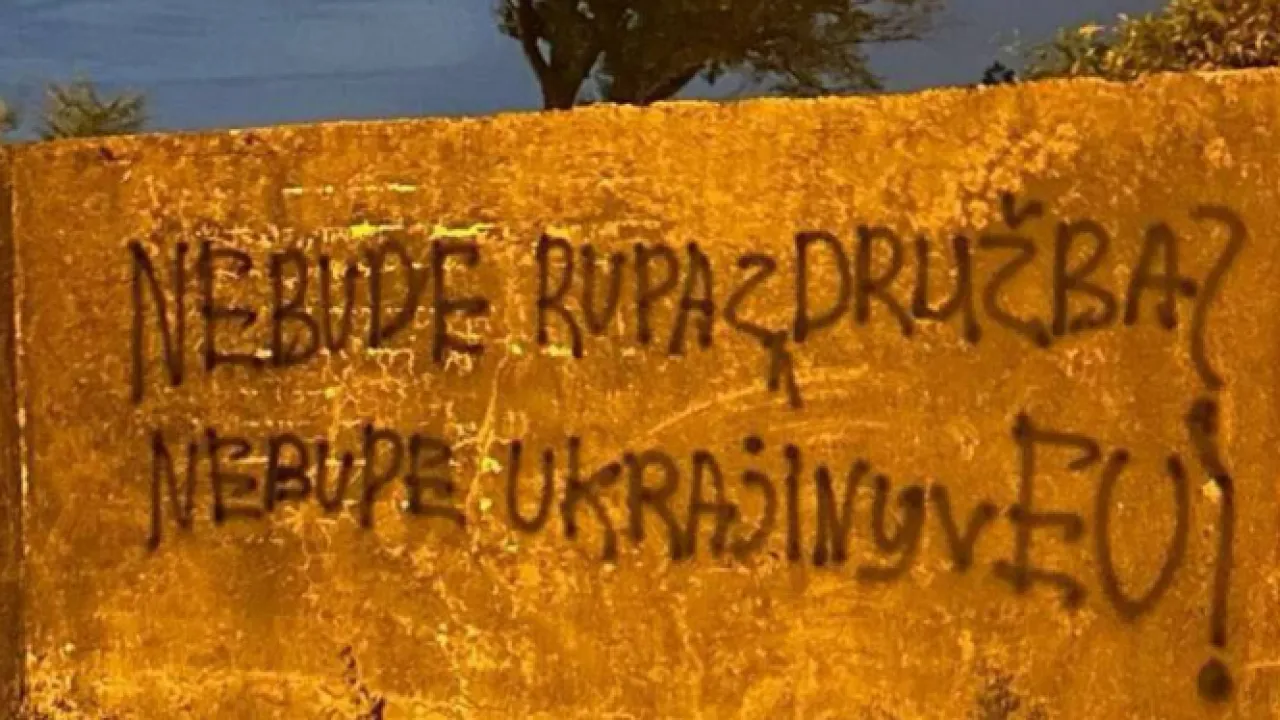 NEBUDE RUPA Z DRUŽBA?
NEBUDE UKRAJINY V EU!